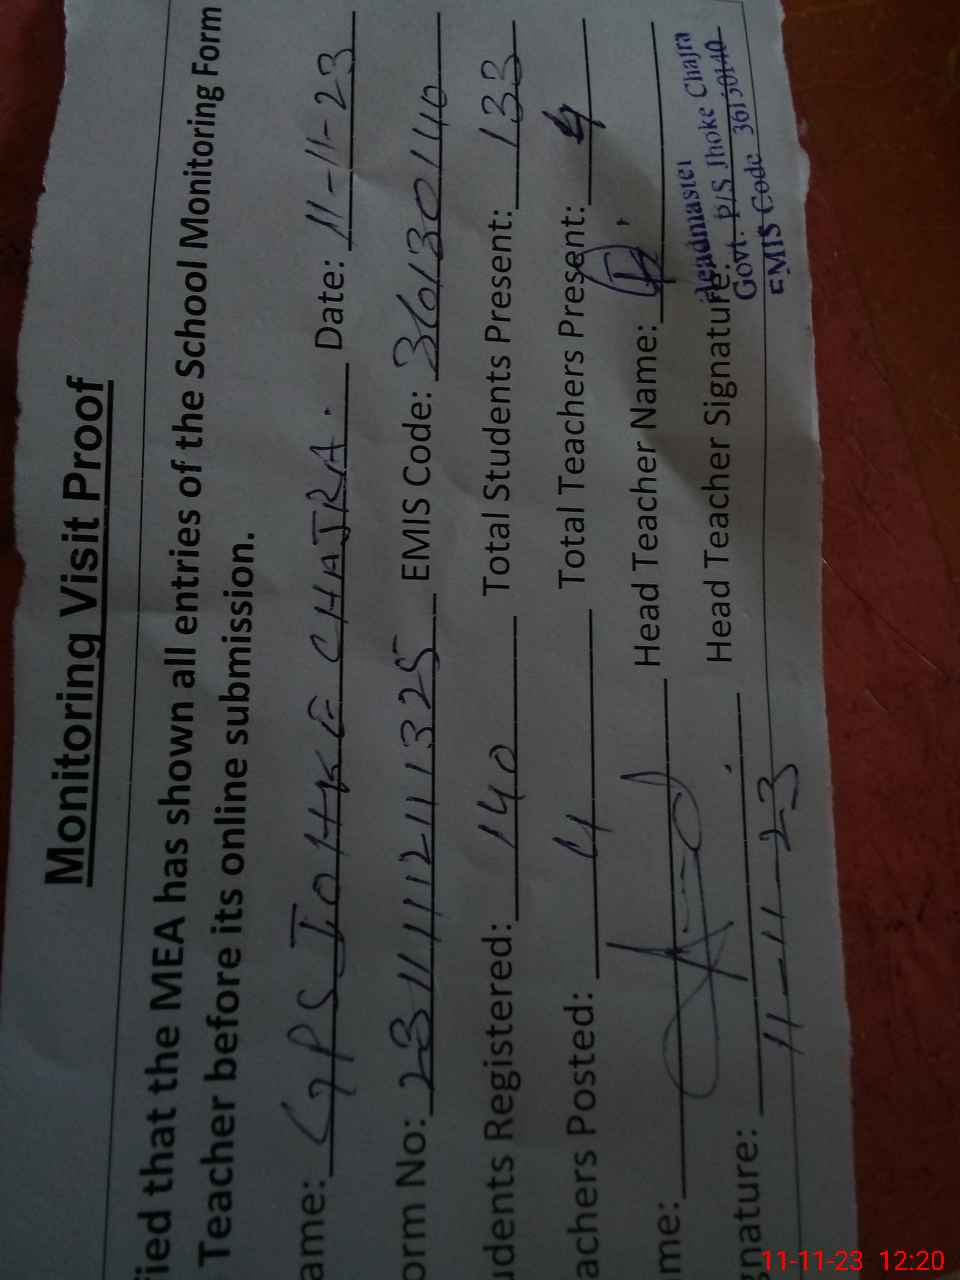 Monitoring Visit Proof
fied that the MEA has shown all entries of the School Monitoring Form
Teacher before its online submission.
ame: GPS JOHKE CHAJRA. Date: 11-11-23
orm No: 231111211325 EMIS Code: 36130140
udents Registered: 140 Total Students Present: 133
achers Posted: 4 Total Teachers Present: 4
me: Head Teacher Name:
gnature: 11-11-23 Head Teacher Signature:
Headmaster
Govt. P/S Jhoke Chajra
EMIS Code 36130140
11-11-23 12:20